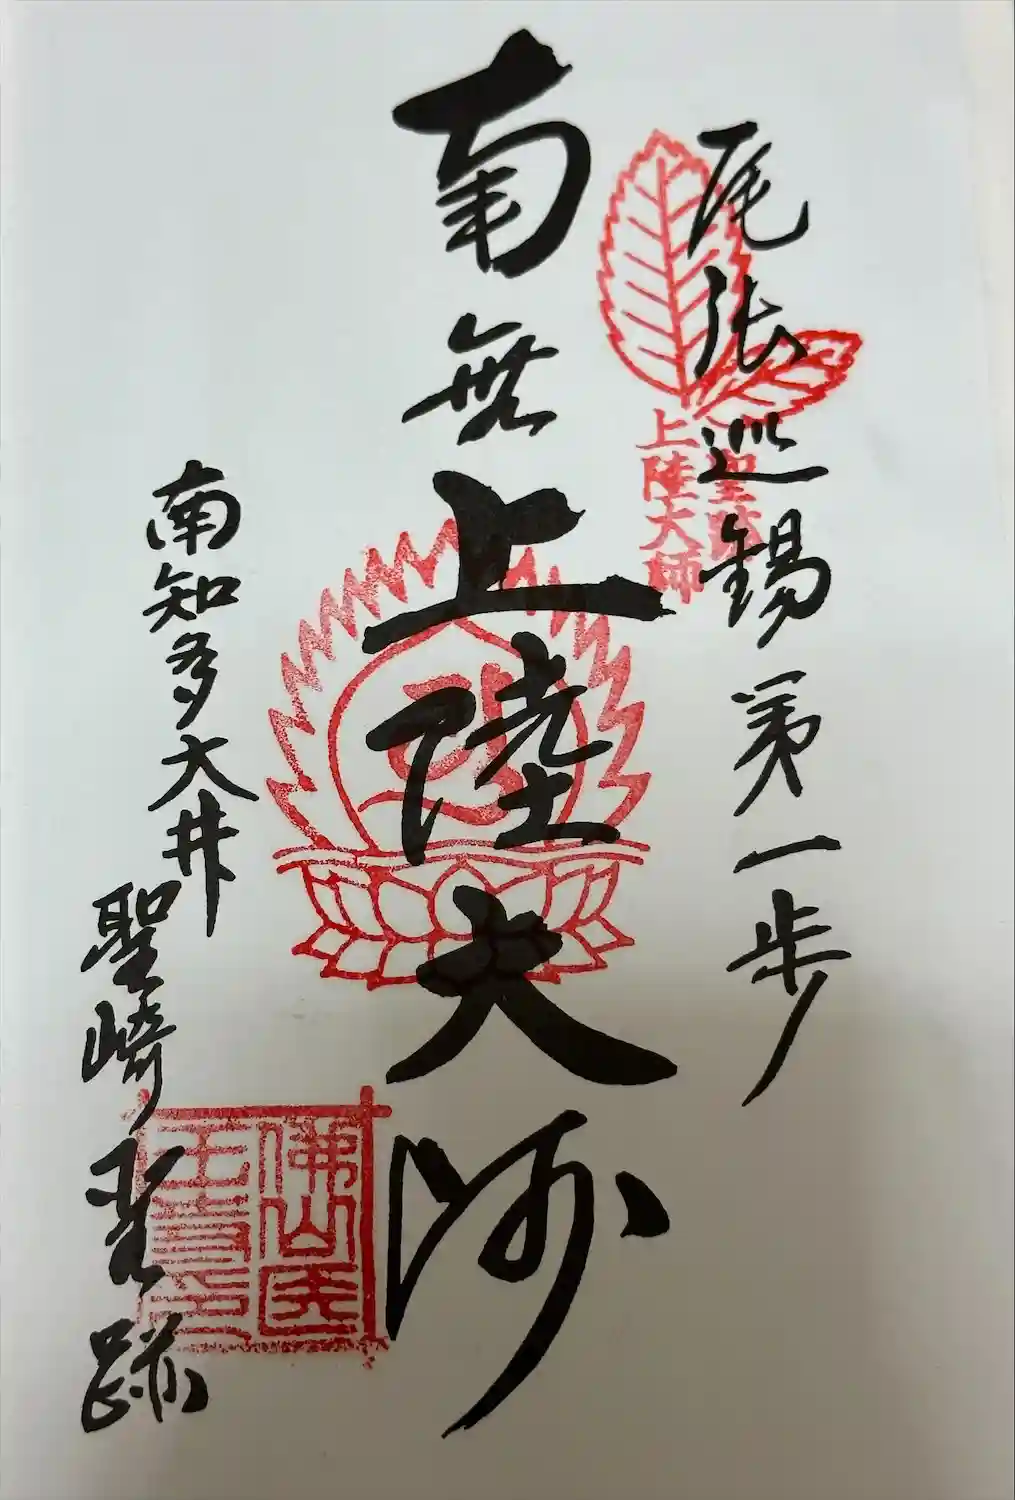 尾張巡錫第一歩
聖跡
上陸大師
南無上陸大師
南知多大井
聖崎聖跡